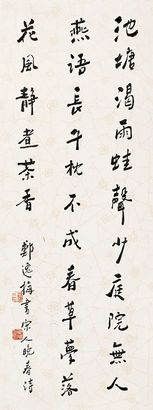 池塘渴雨蛙聲少庭院無人
燕語長午枕不成春草夢落
花風靜煮茶香
鄭逸梅書宋人晚春詩